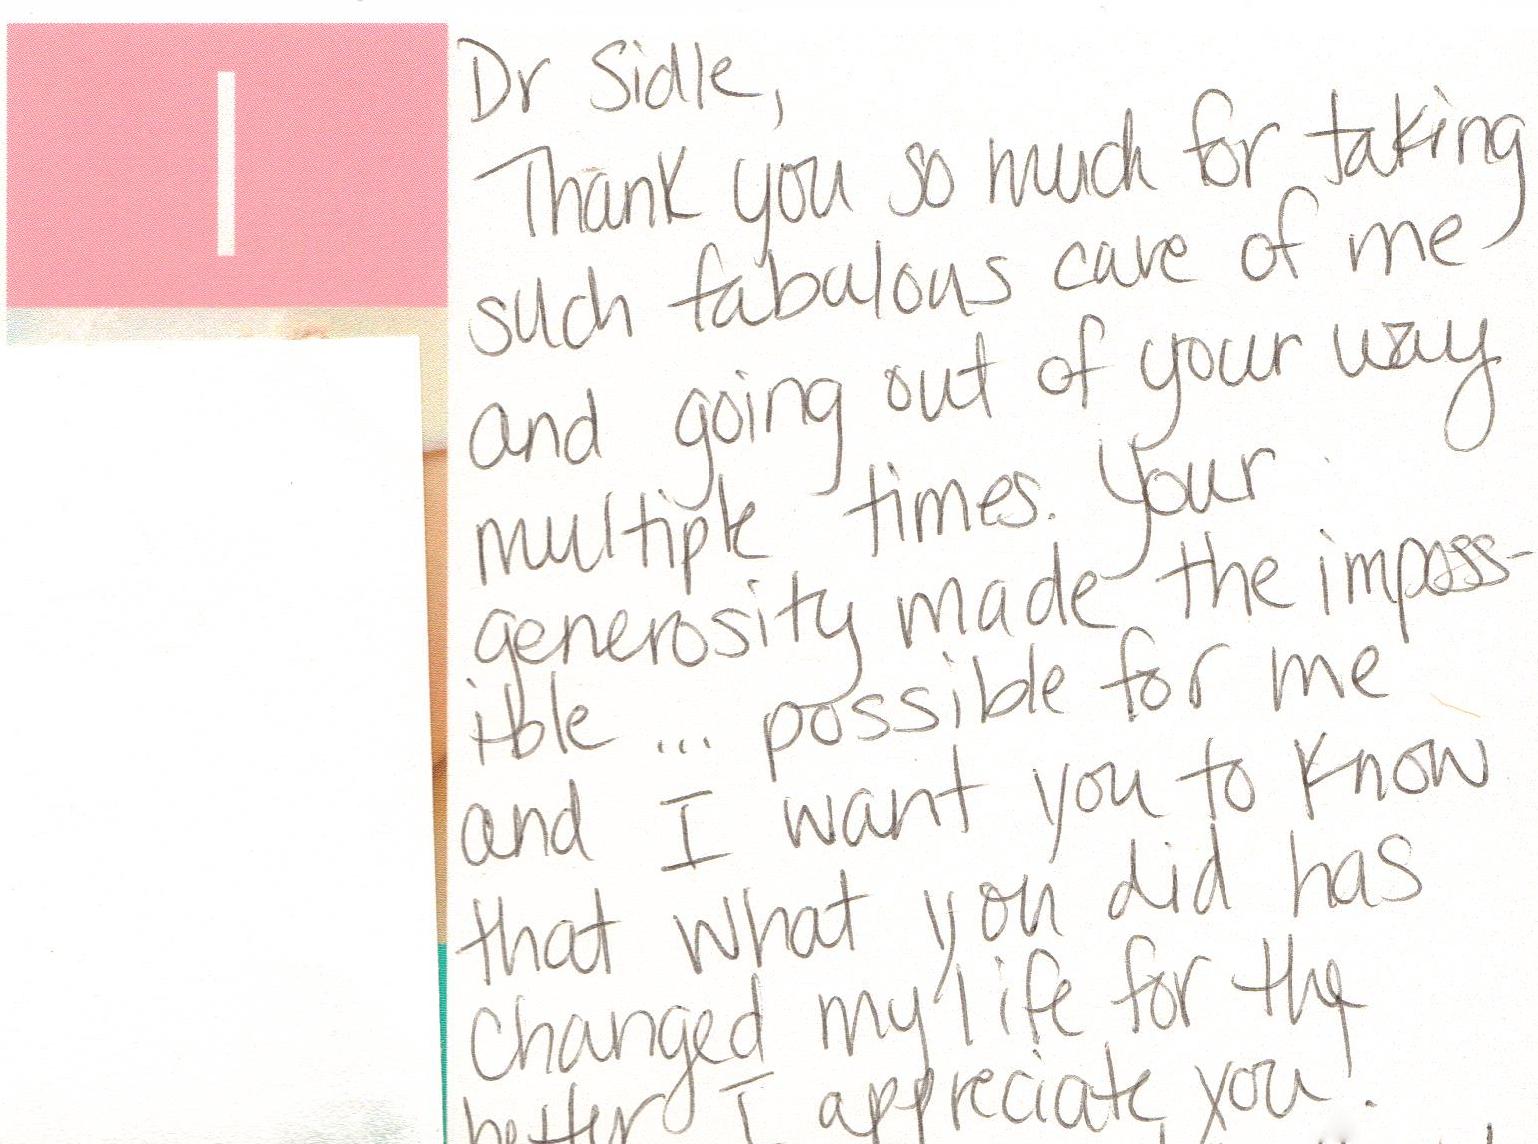 Dr Sidle,
Thank you so much for taking
such fabulous care of me
and going out of your way
multiple times. Your
generosity made the imposs-
ible ... possible for me
and I want you to know
that what you did has
changed my life for the
better I appreciate you!